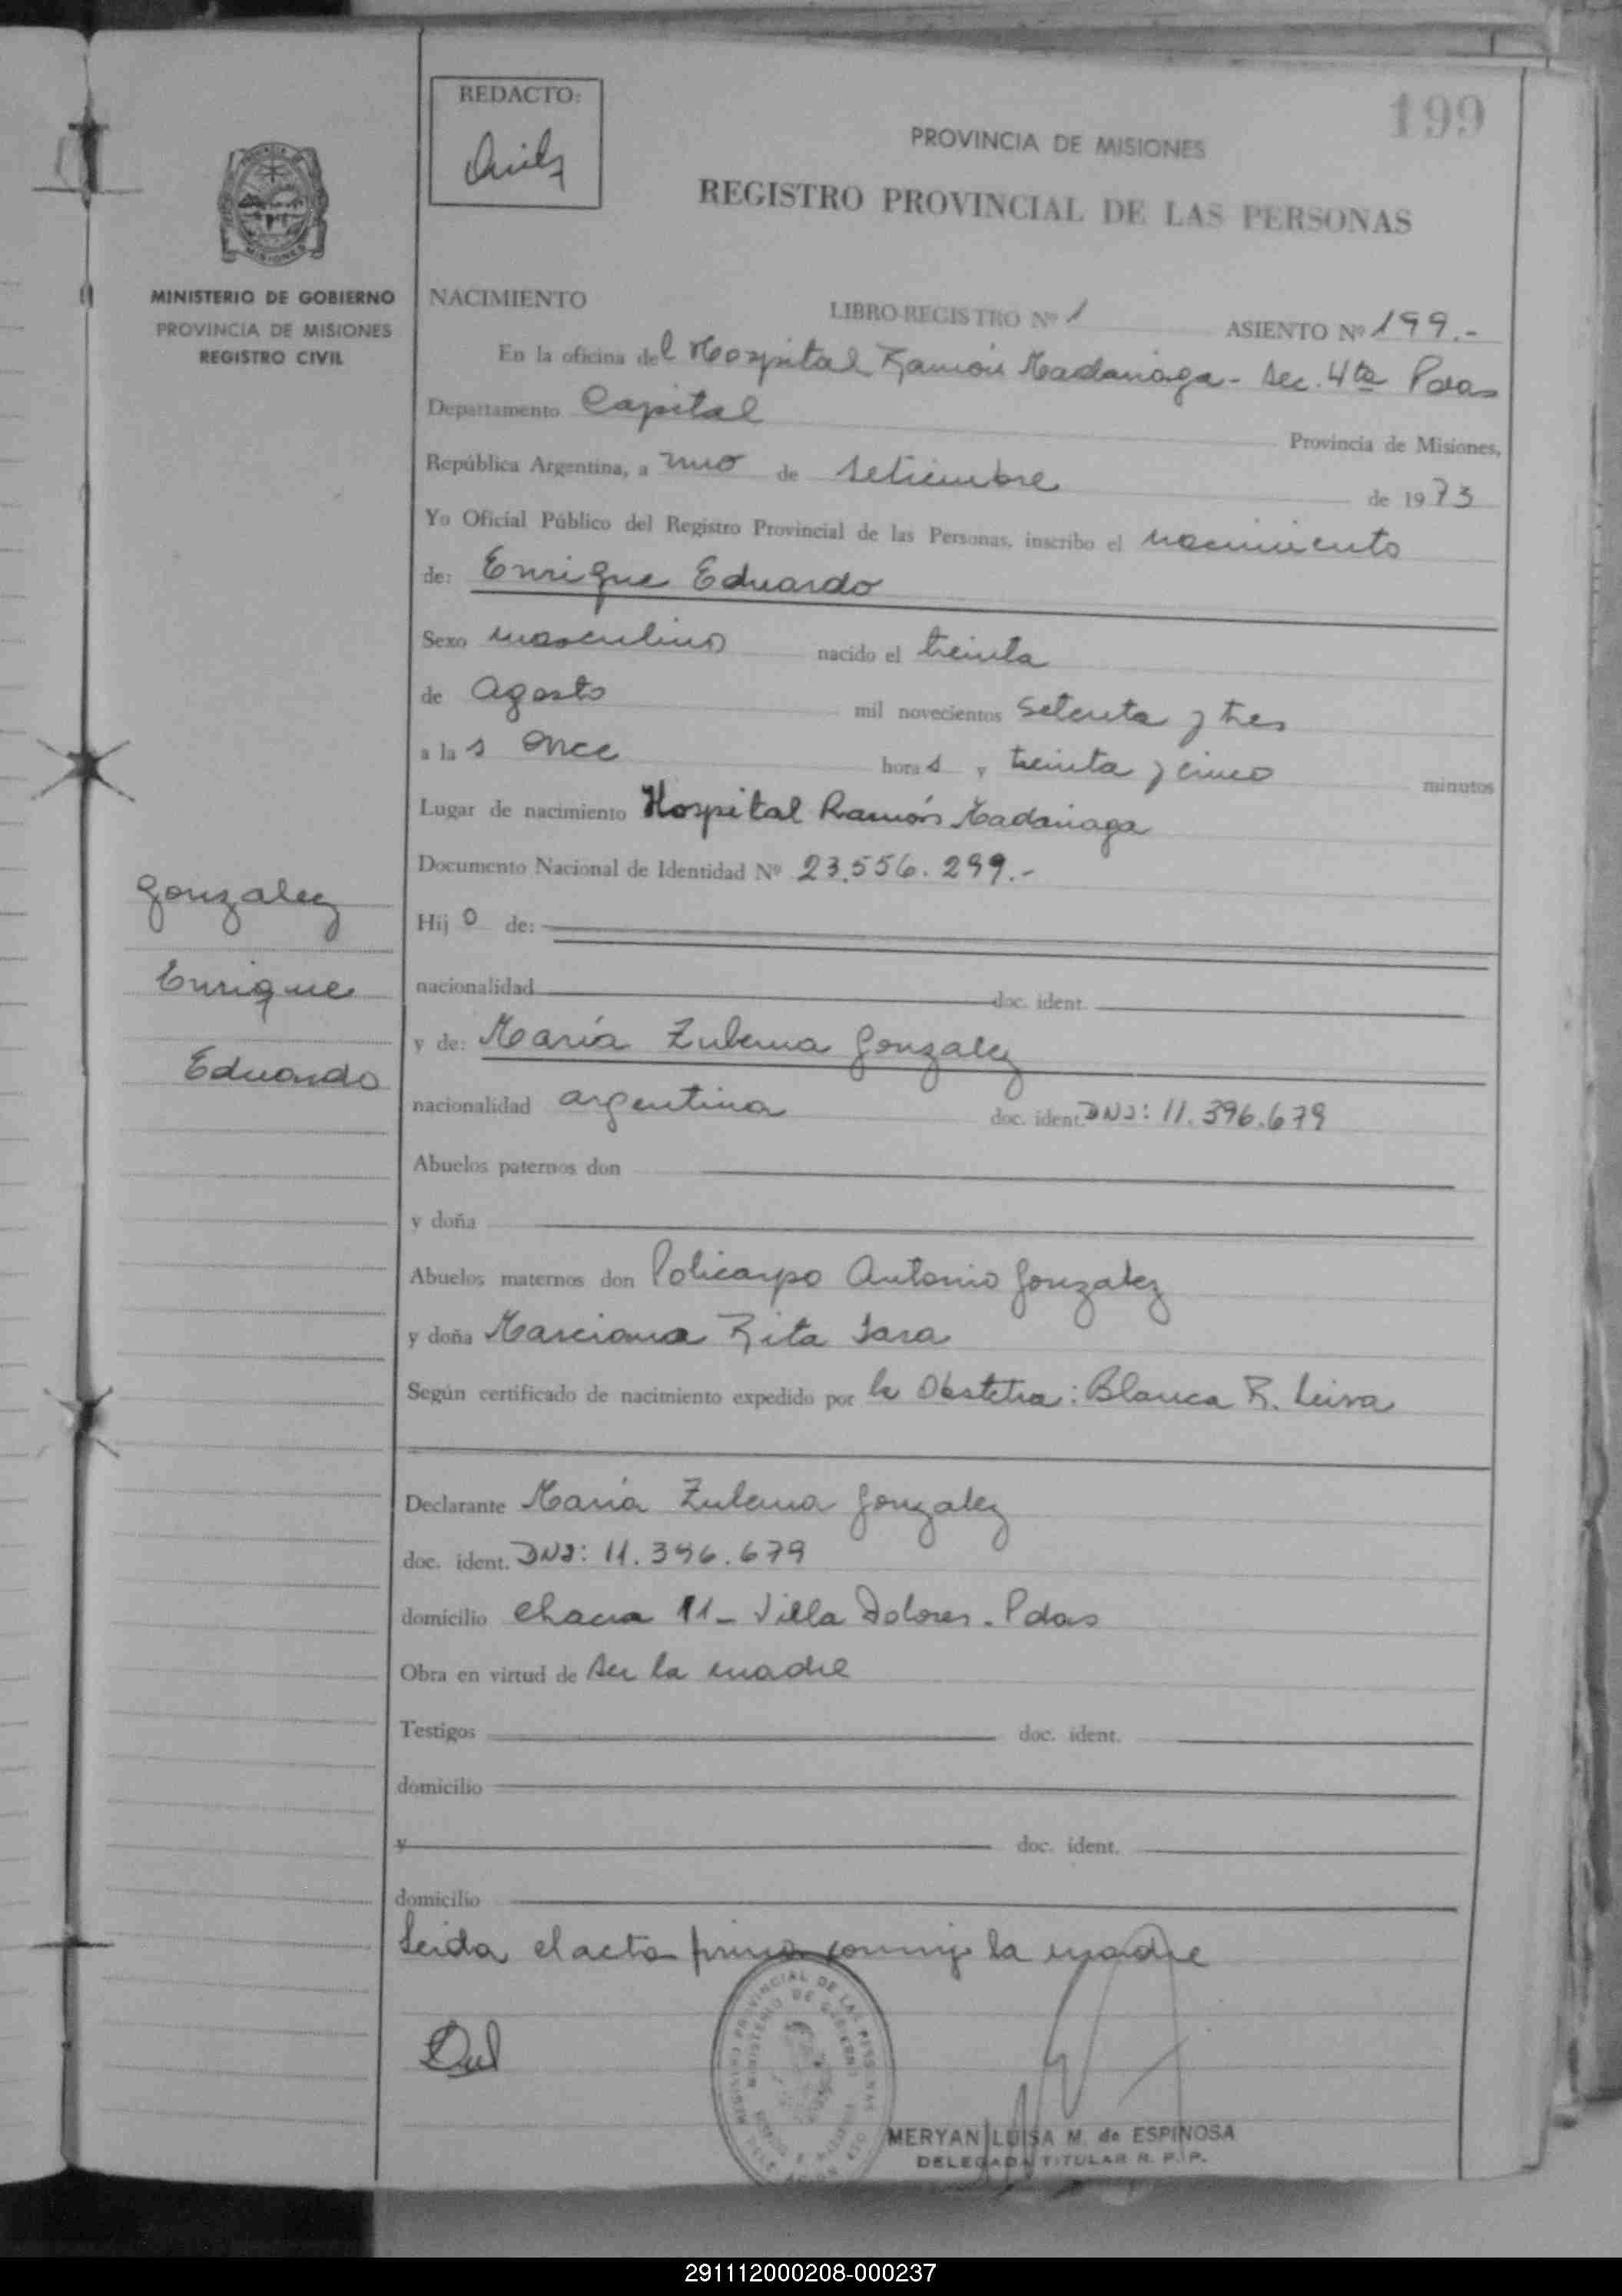 REDACTO:
199
PROVINCIA DE MISIONES
REGISTRO PROVINCIAL DE LAS PERSONAS
MINISTERIO DE GOBIERNO
PROVINCIA DE MISIONES
REGISTRO CIVIL
NACIMIENTO
LIBRO REGISTRO Nº 1 ASIENTO Nº 199.-
En la oficina del Hospital Ramón Madariaga - Sec. 4ta Pdas
Departamento Capital Provincia de Misiones,
República Argentina, a uno de setiembre de 1973
Yo Oficial Público del Registro Provincial de las Personas, inscribo el nacimiento
de: Enrique Eduardo
Sexo masculino nacido el treinta
de Agosto mil novecientos setenta y tres
a las once horas y treinta y cinco minutos
Lugar de nacimiento Hospital Ramón Madariaga
Documento Nacional de Identidad Nº 23.556.299.-
Hijo de:
nacionalidad doc. ident.
y de: María Zulema Gonzalez
nacionalidad argentina doc. ident. DNI: 11.396.679
Gonzalez
Enrique
Eduardo
Abuelos paternos don
y doña
Abuelos maternos don Policarpo Antonio Gonzalez
y doña Marciana Rita Sara
Según certificado de nacimiento expedido por la Obstetra: Blanca R. Leiva
Declarante María Zulema Gonzalez
doc. ident. DNI: 11.396.679
domicilio Chacra 11 - Villa Dolores - Pdas
Obra en virtud de ser la madre
Testigos doc. ident.
domicilio
y doc. ident.
domicilio
Leida el acta firma conmigo la madre
MERYAN LUISA M. de ESPINOSA
DELEGADA TITULAR R. P. P.
291112000208-000237